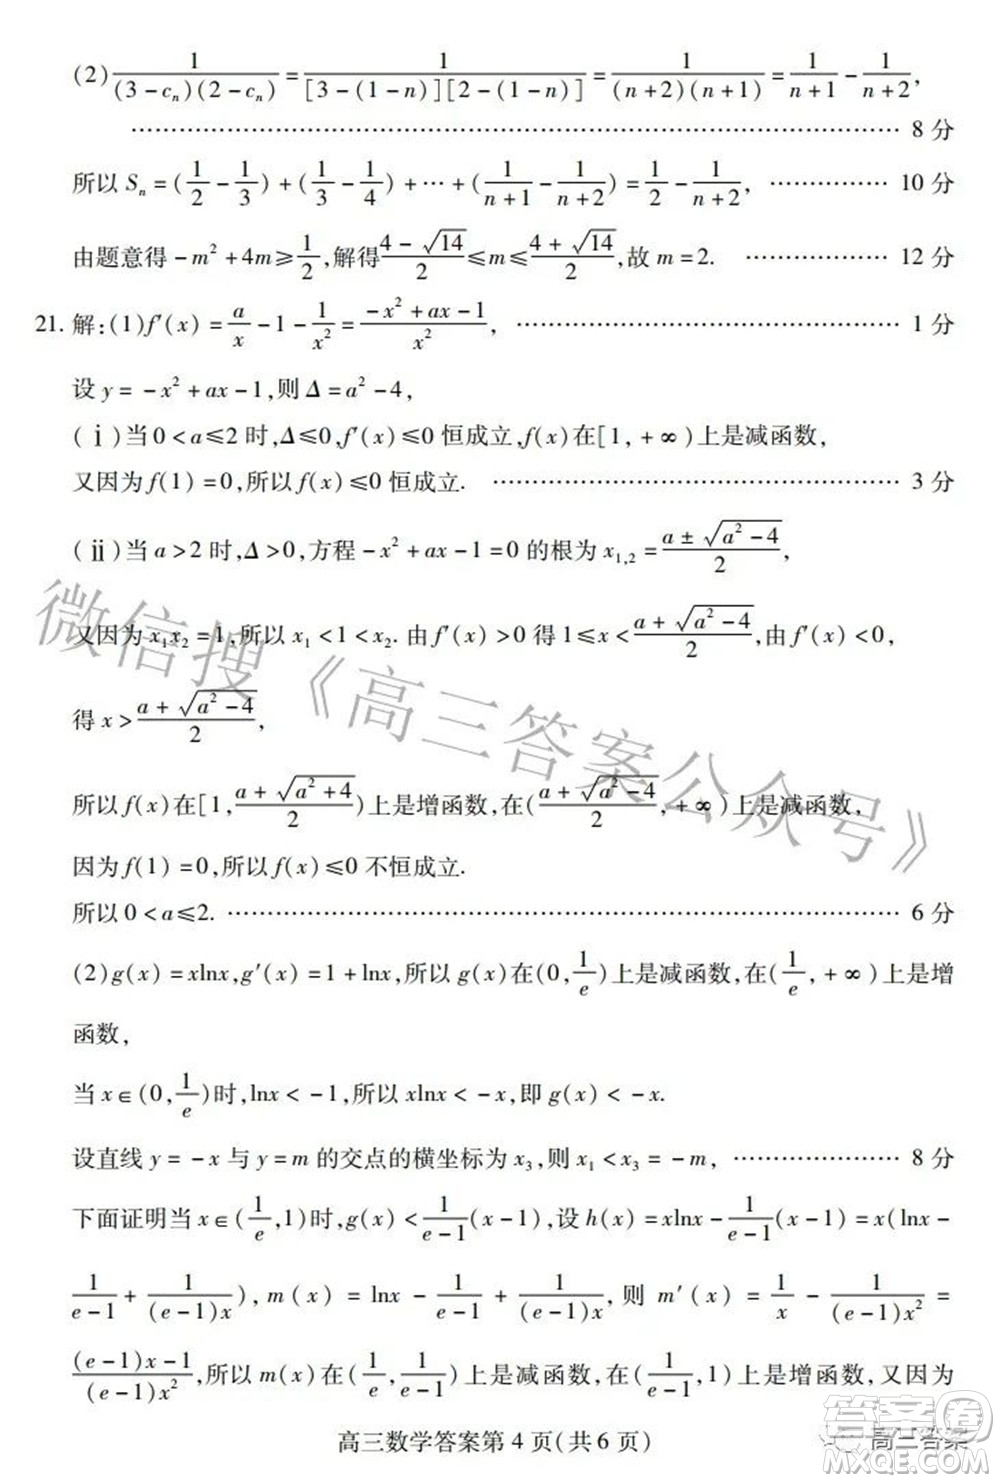 (2) 1/((3-cₙ)(2-cₙ)) = 1/([3-(1-n)][2-(1-n)]) = 1/((n+2)(n+1)) = 1/(n+1) - 1/(n+2),
…………………………………………………………………… 8 分
所以 Sₙ = (1/2 - 1/3) + (1/3 - 1/4) + … + (1/(n+1) - 1/(n+2)) = 1/2 - 1/(n+2), …………… 10 分
由题意得 -m² + 4m ≥ 1/2, 解得 (4-√14)/2 ≤ m ≤ (4+√14)/2, 故 m = 2. …………… 12 分
21. 解:(1) f′(x) = a/x - 1 - 1/x² = (-x² + ax - 1)/x², ……………………………… 1 分
设 y = -x² + ax - 1, 则 Δ = a² - 4,
(ⅰ)当 0 < a ≤ 2 时, Δ ≤ 0, f′(x) ≤ 0 恒成立, f(x) 在 [1, +∞) 上是减函数,
又因为 f(1) = 0, 所以 f(x) ≤ 0 恒成立. ………………………………… 3 分
(ⅱ)当 a > 2 时, Δ > 0, 方程 -x² + ax - 1 = 0 的根为 x₁,₂ = (a ± √(a² - 4))/2,
又因为 x₁x₂ = 1, 所以 x₁ < 1 < x₂. 由 f′(x) > 0 得 1 ≤ x < (a + √(a² - 4))/2, 由 f′(x) < 0,
得 x > (a + √(a² - 4))/2,
所以 f(x) 在 [1, (a + √(a² + 4))/2) 上是增函数, 在 ((a + √(a² - 4))/2, +∞) 上是减函数,
因为 f(1) = 0, 所以 f(x) ≤ 0 不恒成立.
所以 0 < a ≤ 2. ………………………………………………………… 6 分
(2) g(x) = xlnx, g′(x) = 1 + lnx, 所以 g(x) 在 (0, 1/e) 上是减函数, 在 (1/e, +∞) 上是增
函数,
当 x ∈ (0, 1/e) 时, lnx < -1, 所以 xlnx < -x, 即 g(x) < -x.
设直线 y = -x 与 y = m 的交点的横坐标为 x₃, 则 x₁ < x₃ = -m, …………… 8 分
下面证明当 x ∈ (1/e, 1) 时, g(x) < 1/(e-1) (x-1), 设 h(x) = xlnx - 1/(e-1) (x-1) = x(lnx -
1/(e-1) + 1/((e-1)x)), m(x) = lnx - 1/(e-1) + 1/((e-1)x), 则 m′(x) = 1/x - 1/((e-1)x²) =
((e-1)x-1)/((e-1)x²), 所以 m(x) 在 (1/e, 1/(e-1)) 上是减函数, 在 (1/(e-1), 1) 上是增函数, 又因为
高三数学答案第 4 页(共 6 页)
微信搜《高三答案公众号》
答案圈
高三答案